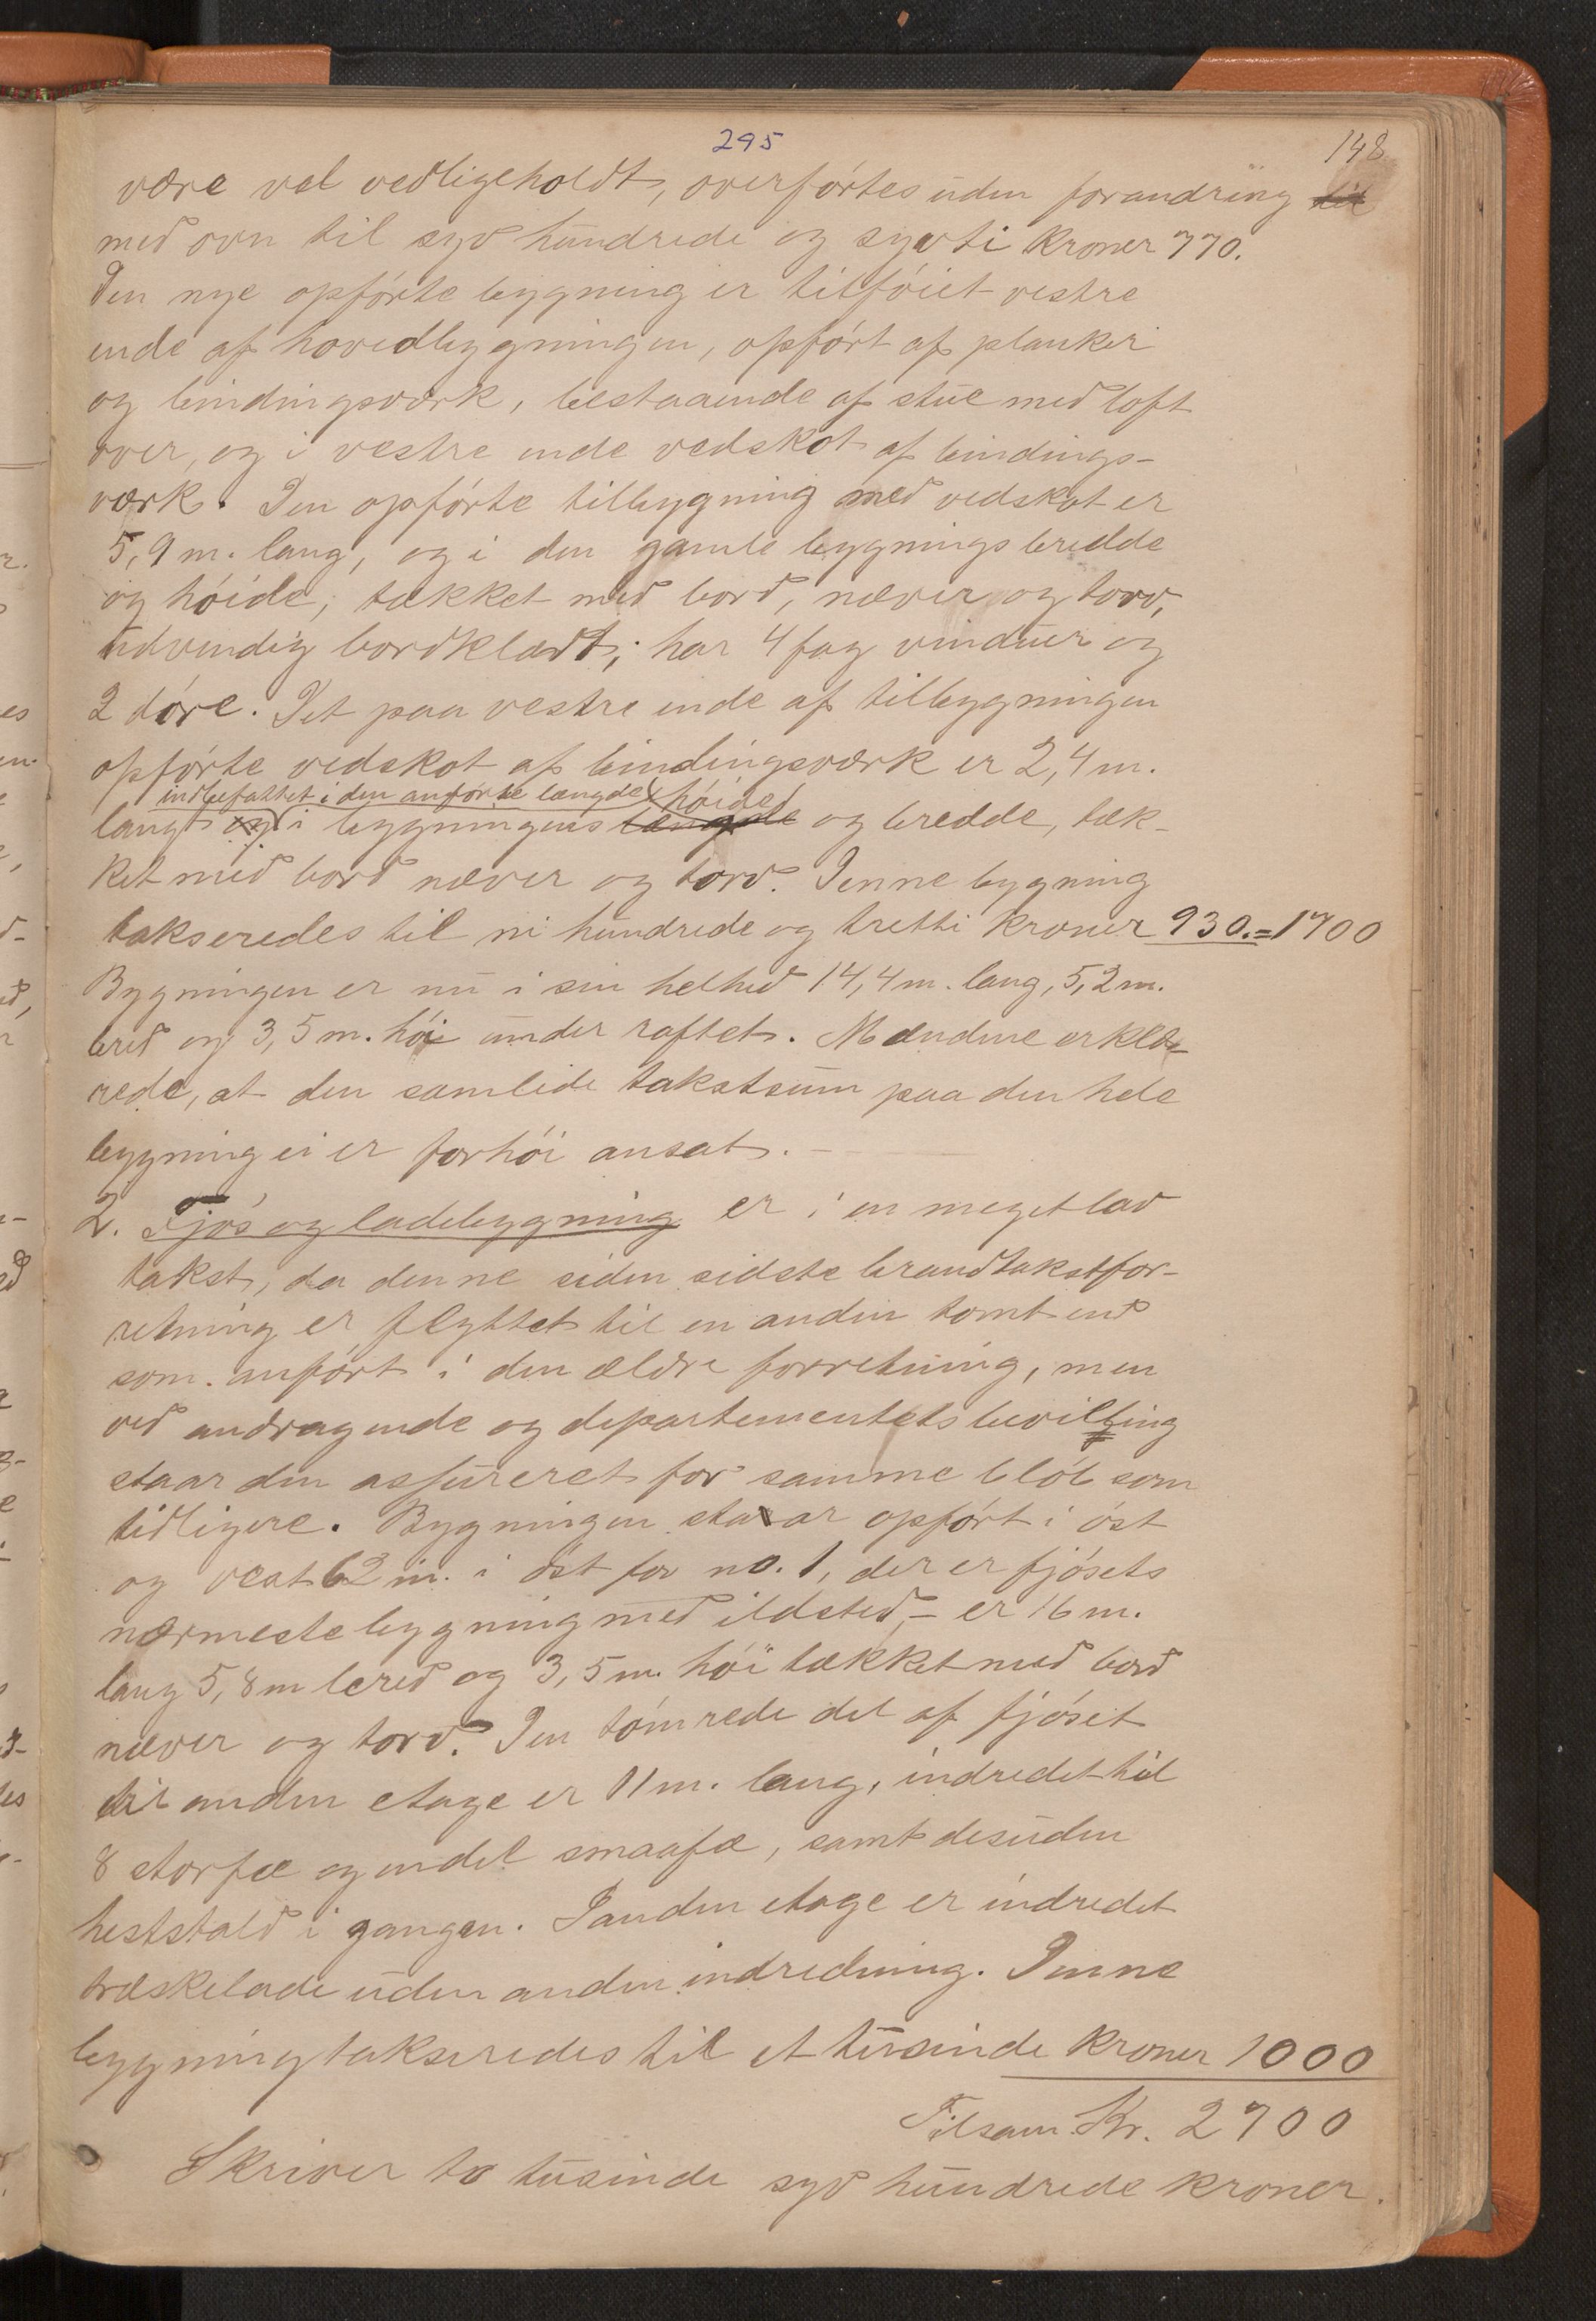 295
148
være vel vedligeholdt, overførtes uden forandring til
med ovn til syv hundrede og sytti kroner 770.
Den nye opførte bygning er tilføiet vestre
ende af hovedbygningen, opført af planker
og bindingsværk, bestaaende af stue med loft
over, og i vestre ende vedskot af bindings-
værk. Den opførte tilbygning med vedskot er
5,9 m. lang, og i den gamle bygnings bredde
og høide; tækket med bord, næver og torv,
udvendig bordklædt; har 4 fag vinduer og
2 døre. Det paa vestre ende af tilbygningen
opførte vedskot af bindingsværk er 2,4 m.
indbefattet i den anførte længde høide
langt og i bygningens længde og bredde, tæk-
ket med bord næver og torv. Denne bygning
takseredes til ni hundrede og tretti kroner 930.=1700
Bygningen er nu i sin helhed 14,4 m. lang, 5,2 m.
bred og 3,5 m. høi under raftet. Mændene erklæ-
rede, at den samlede takstsum paa den hele
bygning ei er forhøi ansat. -
2. Fjøs og ladebygning er i en meget lav
takst, da denne siden sidste brandtakstfor-
retning er flyttet til en anden tomt end
som anført i den ældre forretning, men
ved andragende og departementets bevilling
staar den assureret for samme beløb som
tidligere. Bygningen staar opført i øst
og vest 62 m. i øst for no. 1, der er fjøsets
nærmeste bygning med ildsted, - er 16 m.
lang 5,8 m bred og 3,5 m. høi tækket med bord
næver og torv. Den tømrede del af fjøset
til anden etage er 11 m. lang, indredet til
8 storfæ og endel smaafæ, samt desuden
heststald i gangen. I anden etage er indredet
træskelade uden anden indredning. Denne
bygning takseredes til et tusinde kroner 1000
Tilsam. Kr. 2700
Skriver to tusinde syv hundrede kroner.